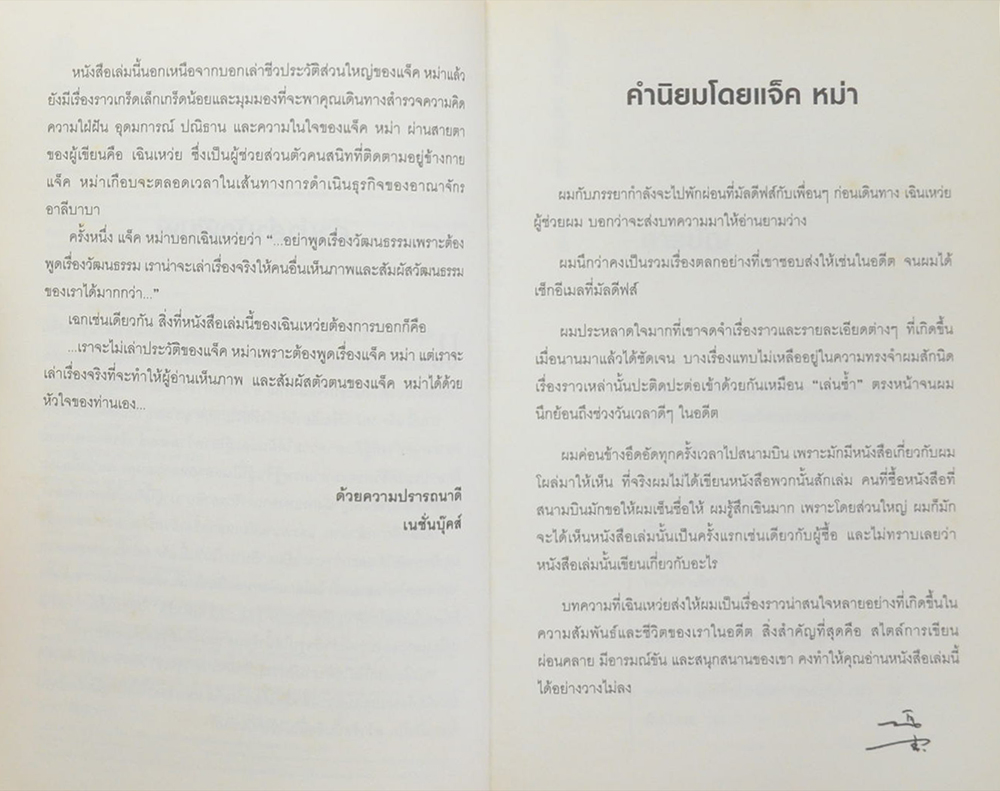 หนังสือเล่มนี้นอกเหนือจากบอกเล่าชีวประวัติส่วนใหญ่ของแจ็ค หม่าแล้ว
ยังมีเรื่องราวเกร็ดเล็กเกร็ดน้อยและมุมมองที่จะพาคุณเดินทางสำรวจความคิด
ความใฝ่ฝัน อุดมการณ์ ปณิธาน และความในใจของแจ็ค หม่า ผ่านสายตา
ของผู้เขียนคือ เฉินเหว่ย ซึ่งเป็นผู้ช่วยส่วนตัวคนสนิทที่ติดตามอยู่ข้างกาย
แจ็ค หม่าเกือบจะตลอดเวลาในเส้นทางการดำเนินธุรกิจของอาณาจักร
อาลีบาบา
ครั้งหนึ่ง แจ็ค หม่าบอกเฉินเหว่ยว่า “...อย่าพูดเรื่องวัฒนธรรมเพราะต้อง
พูดเรื่องวัฒนธรรม เราน่าจะเล่าเรื่องจริงให้คนอื่นเห็นภาพและสัมผัสวัฒนธรรม
ของเราได้มากกว่า...”
เฉกเช่นเดียวกัน สิ่งที่หนังสือเล่มนี้ของเฉินเหว่ยต้องการบอกก็คือ
...เราจะไม่เล่าประวัติของแจ็ค หม่าเพราะต้องพูดเรื่องแจ็ค หม่า แต่เราจะ
เล่าเรื่องจริงที่จะทำให้ผู้อ่านเห็นภาพ และสัมผัสตัวตนของแจ็ค หม่าได้ด้วย
หัวใจของท่านเอง...
ด้วยความปรารถนาดี
เนชั่นบุ๊คส์
คำนิยมโดยแจ็ค หม่า
ผมกับภรรยากำลังจะไปพักผ่อนที่มัลดีฟส์กับเพื่อนๆ ก่อนเดินทาง เฉินเหว่ย
ผู้ช่วยผม บอกว่าจะส่งบทความมาให้อ่านยามว่าง
ผมนึกว่าคงเป็นรวมเรื่องตลกอย่างที่เขาชอบส่งให้เช่นในอดีต จนผมได้
เช็กอีเมลที่มัลดีฟส์
ผมประหลาดใจมากที่เขาจดจำเรื่องราวและรายละเอียดต่างๆ ที่เกิดขึ้น
เมื่อนานมาแล้วได้ชัดเจน บางเรื่องแทบไม่เหลืออยู่ในความทรงจำผมสักนิด
เรื่องราวเหล่านั้นปะติดปะต่อเข้าด้วยกันเหมือน “เล่นซ้ำ” ตรงหน้าจนผม
นึกย้อนถึงช่วงวันเวลาดีๆ ในอดีต
ผมค่อนข้างอึดอัดทุกครั้งเวลาไปสนามบิน เพราะมักมีหนังสือเกี่ยวกับผม
โผล่มาให้เห็น ที่จริงผมไม่ได้เขียนหนังสือพวกนั้นสักเล่ม คนที่ซื้อหนังสือที่
สนามบินมักขอให้ผมเซ็นชื่อให้ ผมรู้สึกเขินมาก เพราะโดยส่วนใหญ่ ผมก็มัก
จะได้เห็นหนังสือเล่มนั้นเป็นครั้งแรกเช่นเดียวกับผู้ซื้อ และไม่ทราบเลยว่า
หนังสือเล่มนั้นเขียนเกี่ยวกับอะไร
บทความที่เฉินเหว่ยส่งให้ผมเป็นเรื่องราวน่าสนใจหลายอย่างที่เกิดขึ้นใน
ความสัมพันธ์และชีวิตของเราในอดีต สิ่งสำคัญที่สุดคือ สไตล์การเขียน
ผ่อนคลาย มีอารมณ์ขัน และสนุกสนานของเขา คงทำให้คุณอ่านหนังสือเล่มนี้
ได้อย่างวางไม่ลง